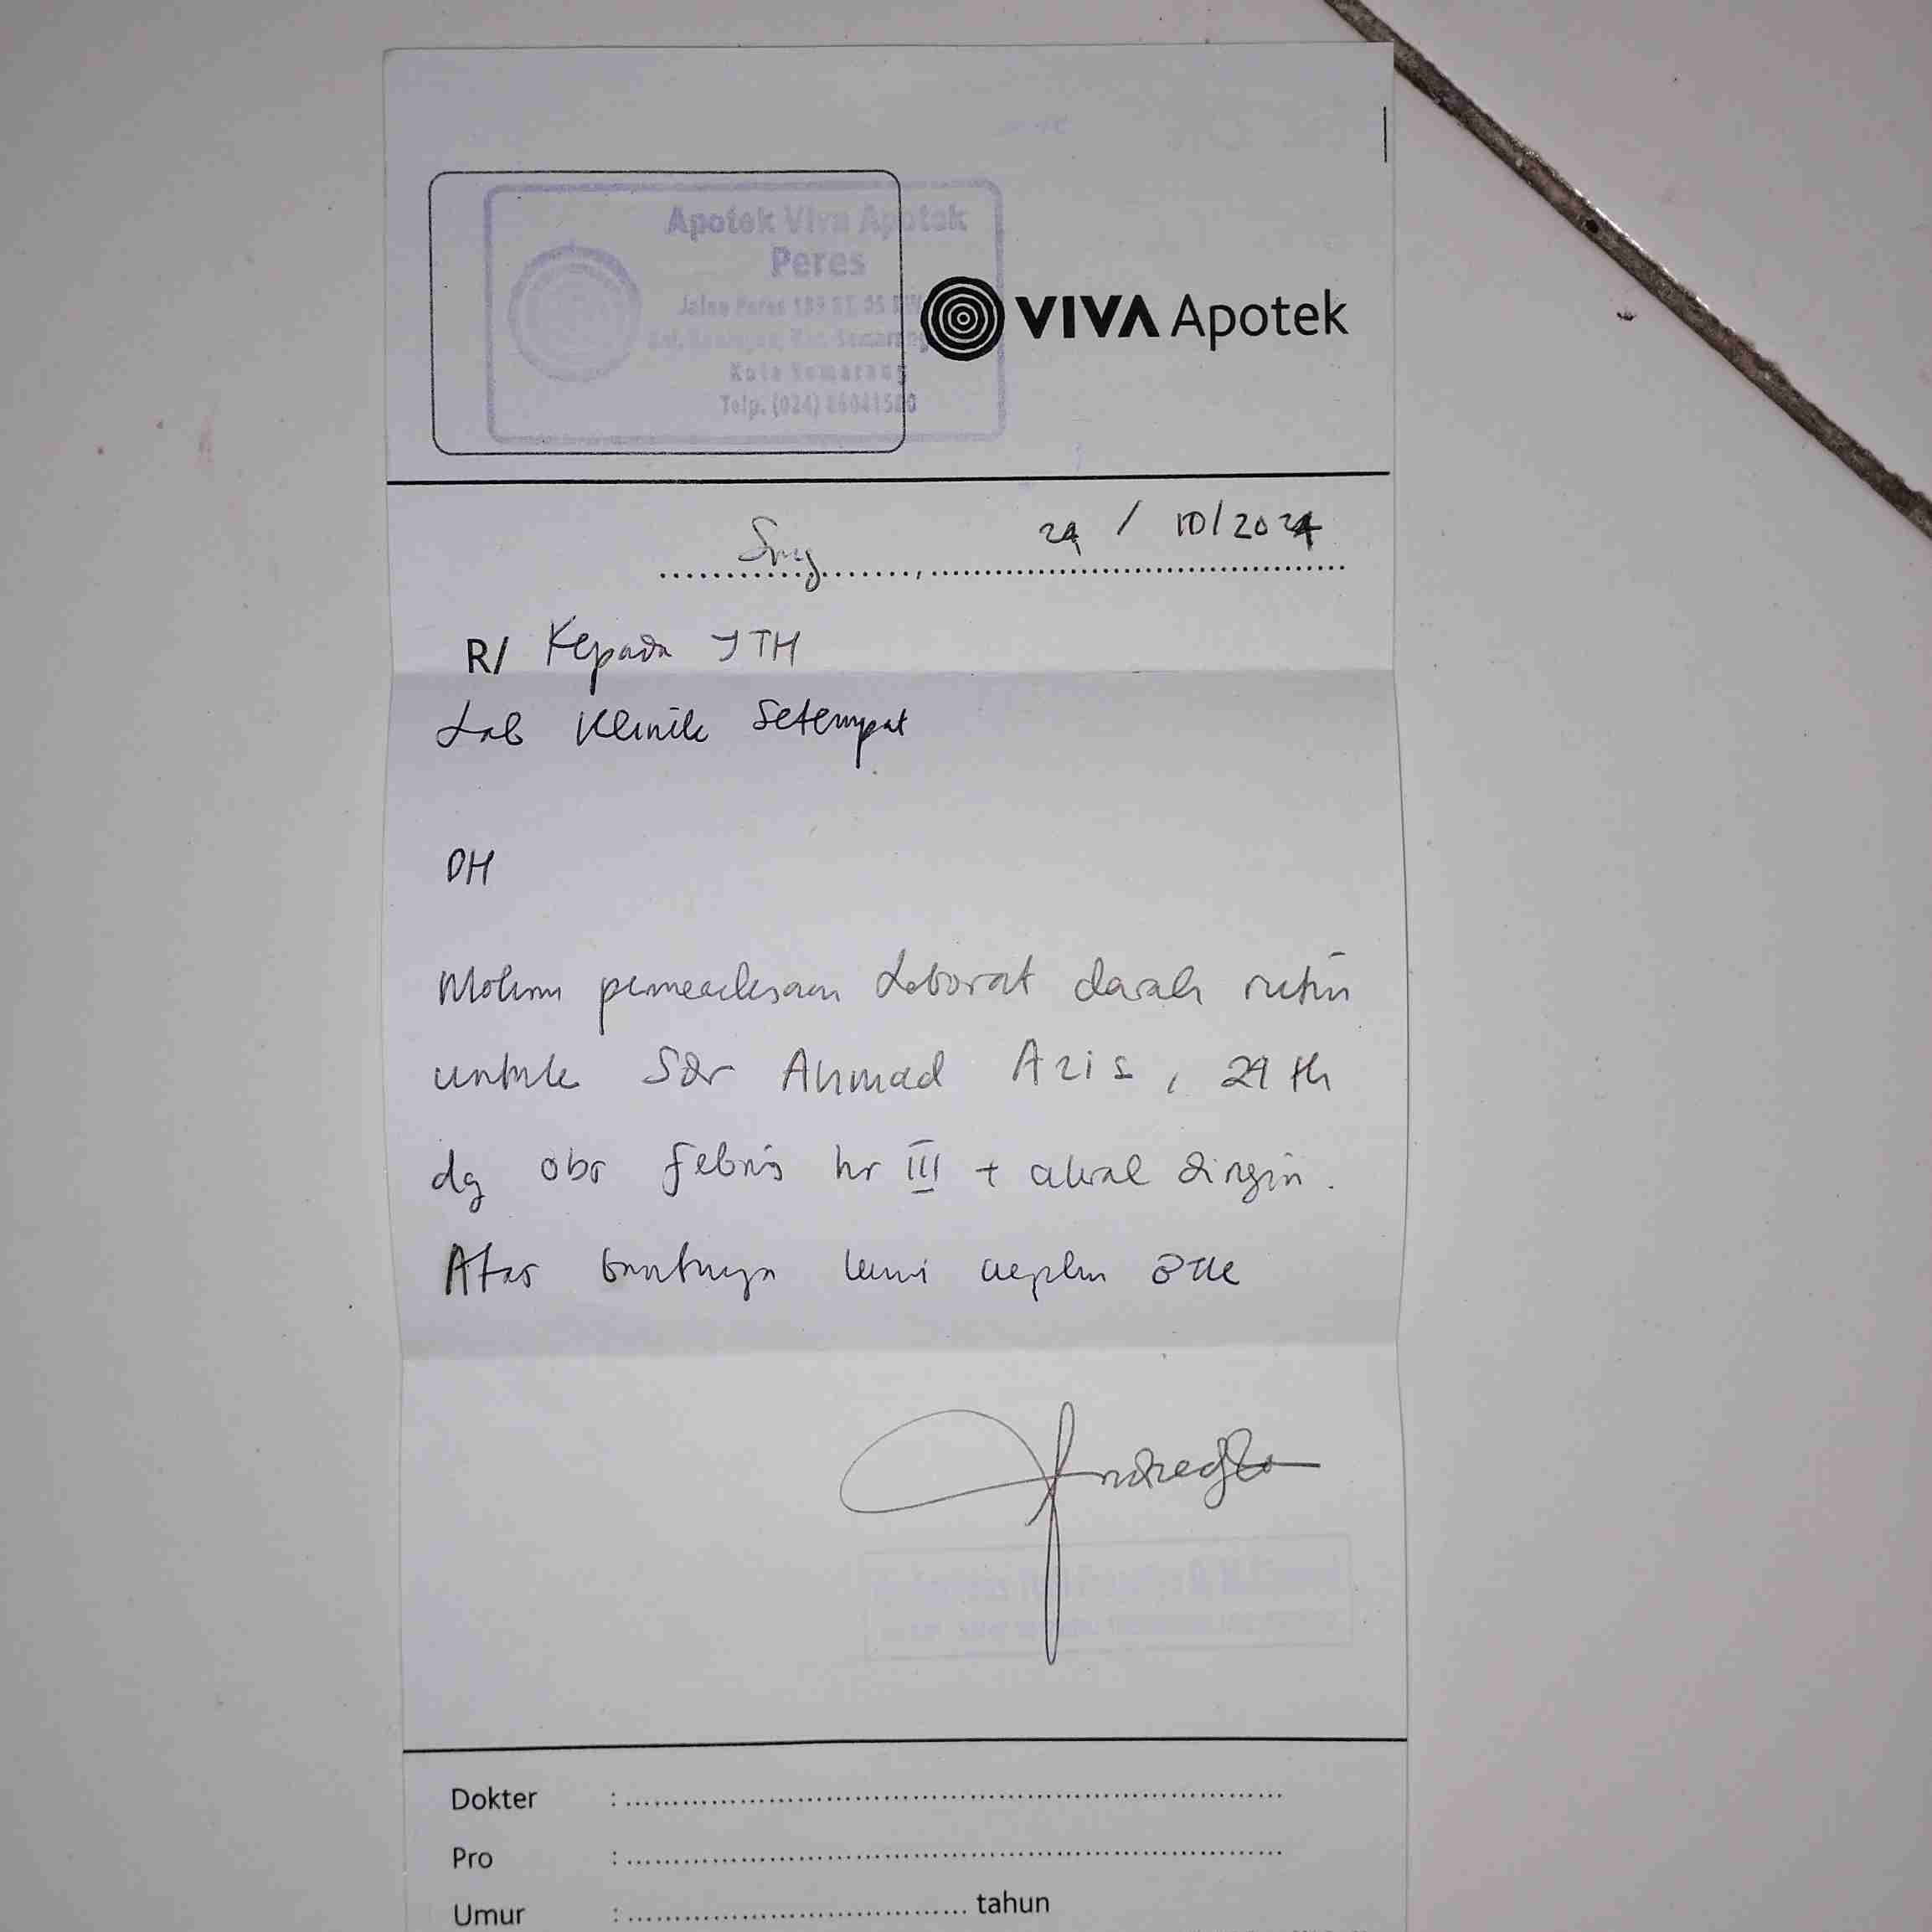 Apotek Viva Apotek
Peres
Jalan Peres 189 RT. 05
Kota Semarang
Telp. (024)
VIVA Apotek
Smg, 24 / 10/2024
R/ Kepada YTH
Lab Klinik Setempat
DH
Mohon pemeriksaan Laborat darah rutin
untuk Sdr Ahmad Azis, 29 th
dg obs febris hr III + akral dingin.
Atas bantunya kami ucpkn
Dokter : ....................
Pro : ....................
Umur : .................... tahun